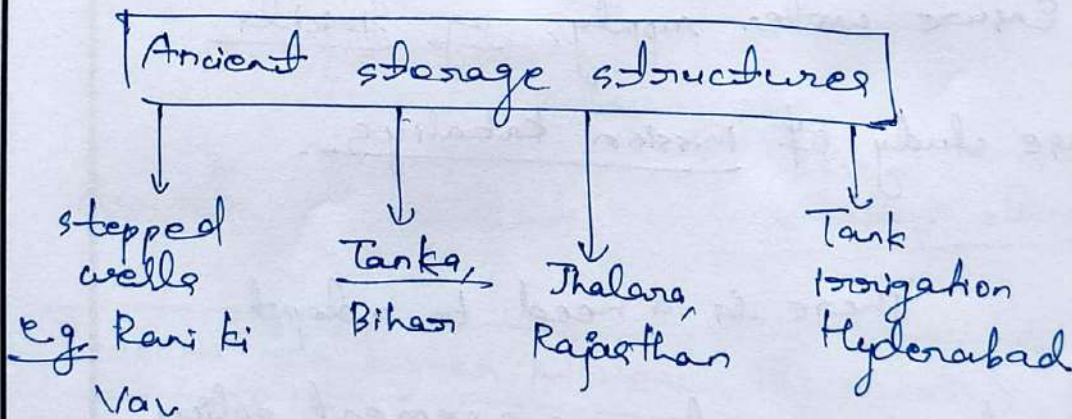 Ancient storage structures
stepped
wells
e.g. Rani ki
Vav
Tanka,
Bihar
Jhalara,
Rajasthan
Tank
Irrigation
Hyderabad